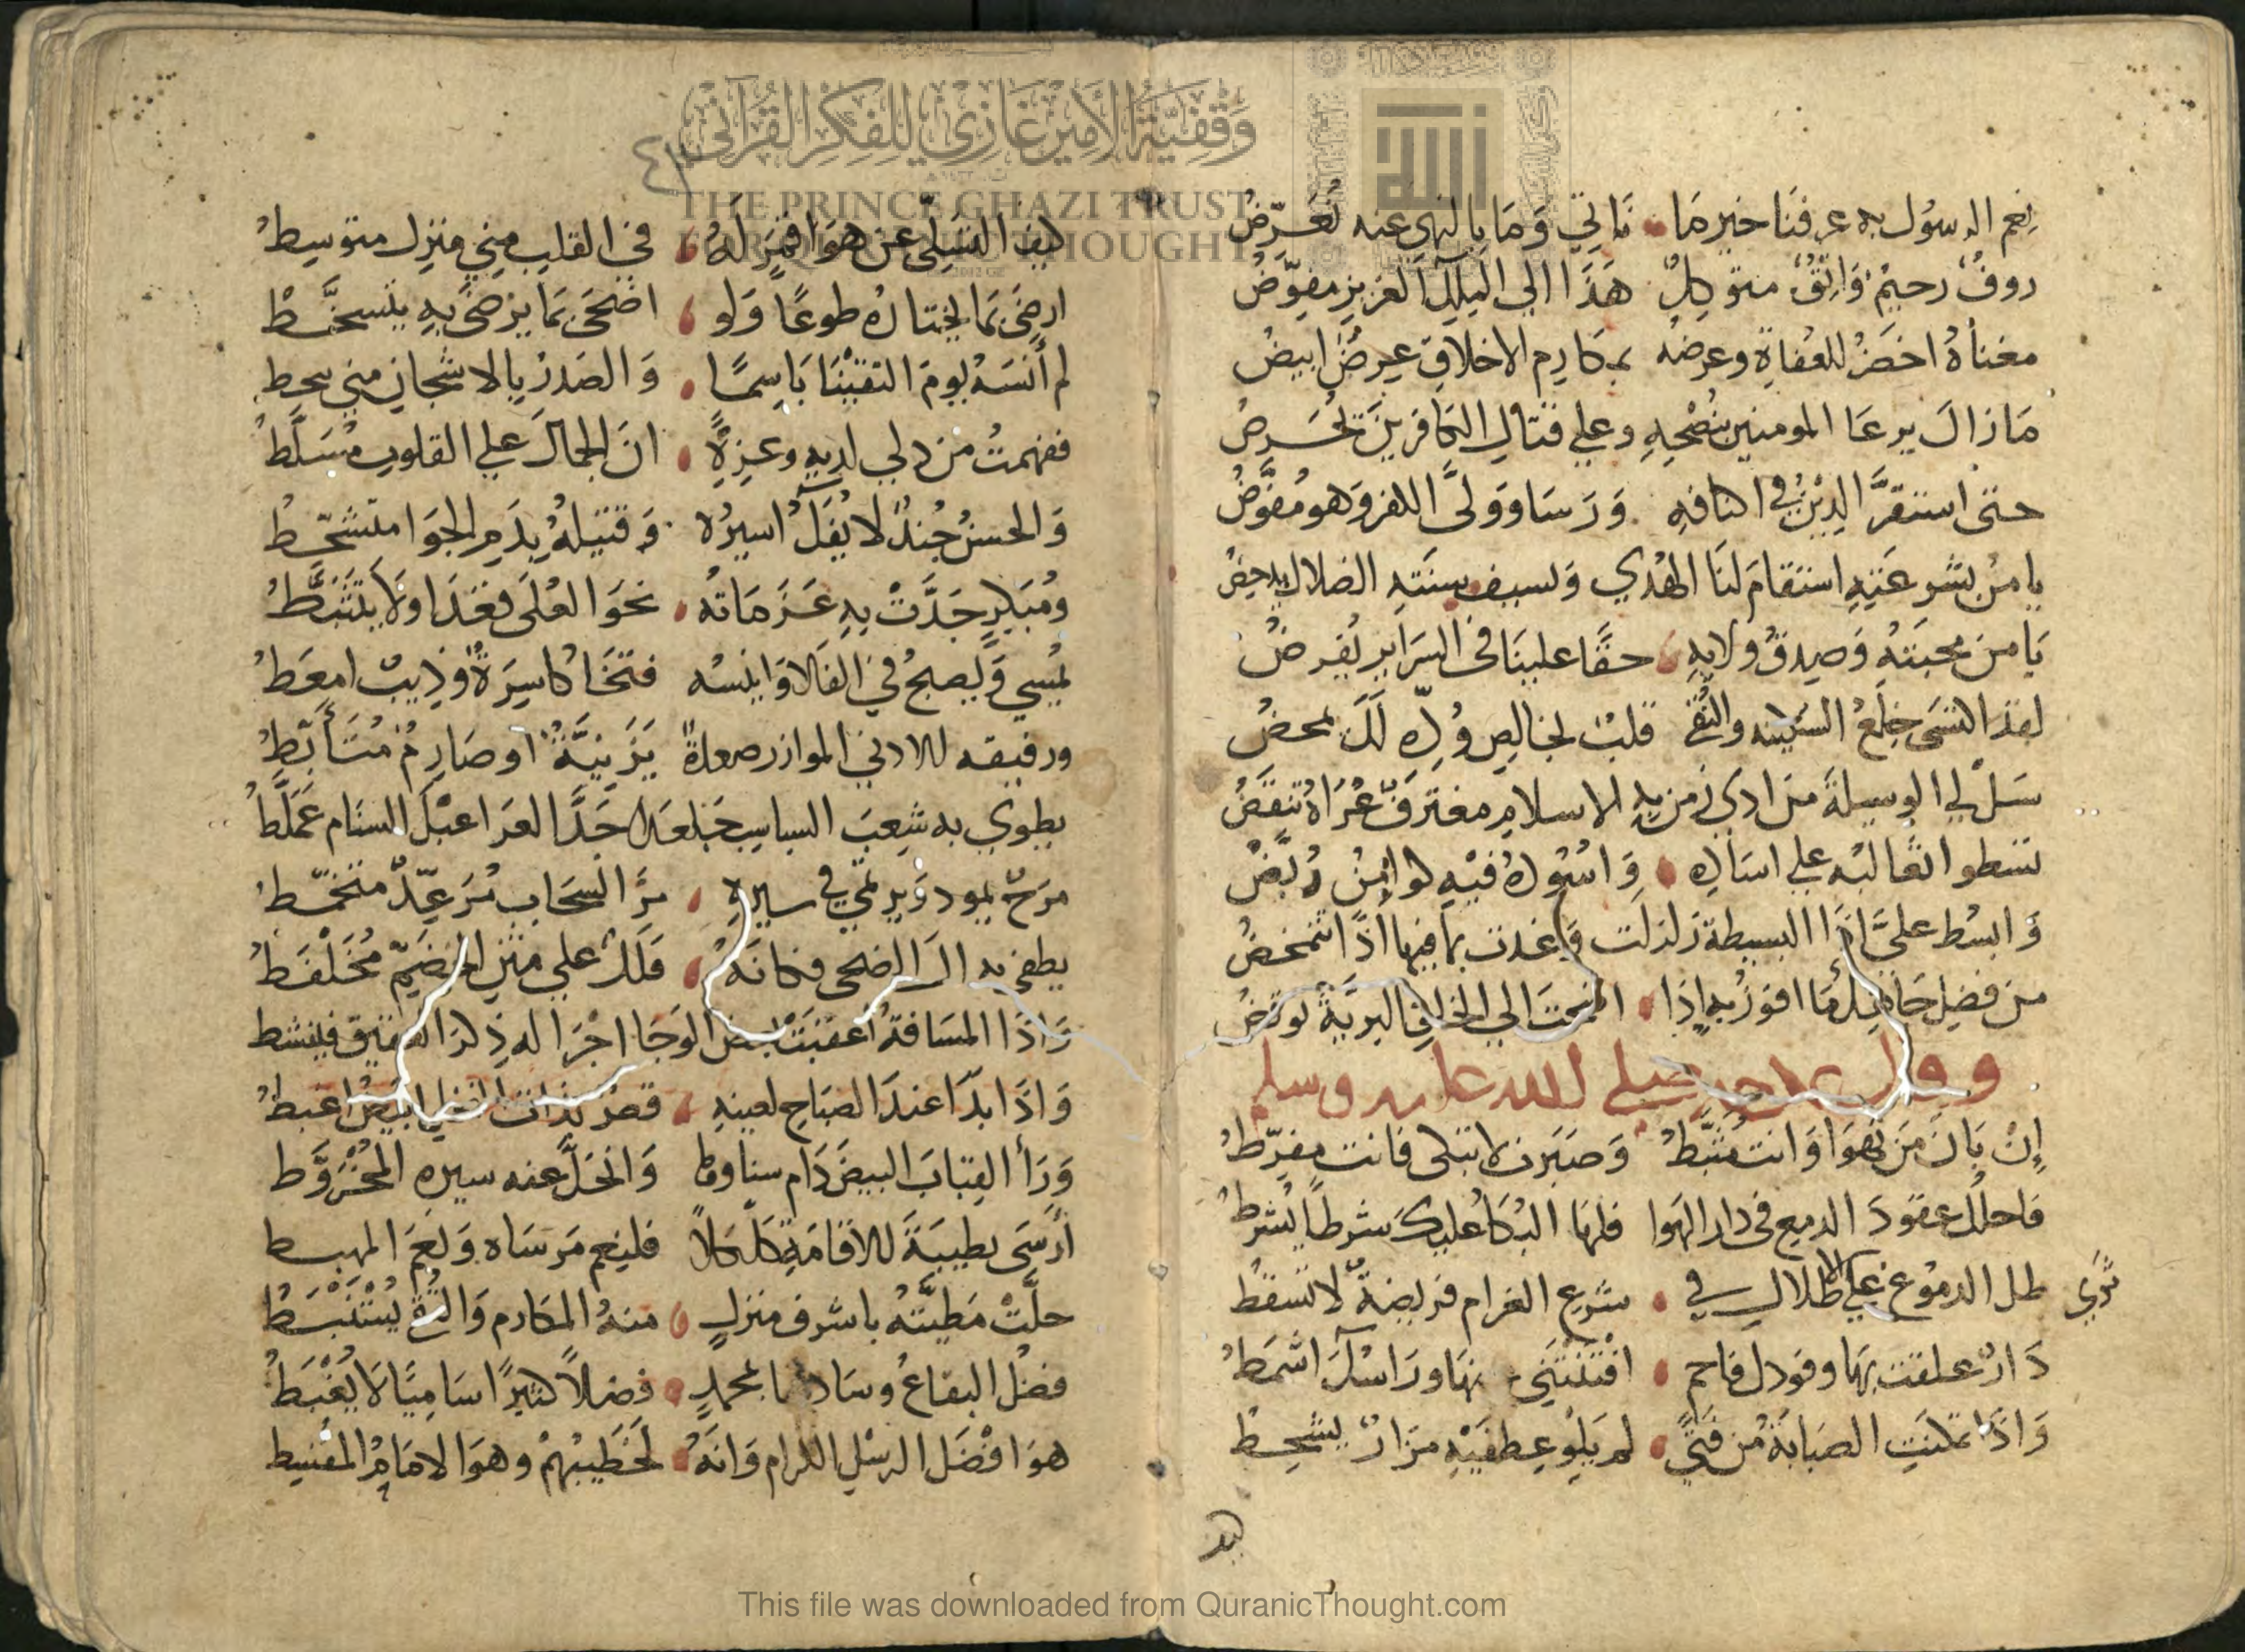 وقفية الأمير غازي للفكر القرآني
THE PRINCE GHAZI TRUST
THOUGHT
نعم الرسول به عرفنا خير ما ناتي وما بالنهي عنه تعرض
روف رحيم واثق متوكل هذا الي الملك العزيز مفوض
مغناه اخضر للعفاة وعرضه بمكارم الاخلاق عرض ابيض
ما زال يرعا المومنين بنصحه وعلي قتال الكافرين تحرض
حتى استقر الدين في اكنافه ورسا وولى الكفر وهو مقوض
يا من بشرعته استقام لنا الهدي وبسيف سنته الضلال يدحض
يا من محبته وصدق ولايه حقا علينا في السراير يفرض
لقد اكتسى خلع السكينه والتقى قلب لخالص وده لك يمحض
سل لي الوسيلة من ادى زمن به الاسلام مغترق عراه تنقض
تسطوا ثعالبه علي اساده واسوده فيه كوامن ربض
وابسط علي اذا البسيطة زلزلت وغدت بما فيها اذا تتمخض
من فضل جاهك ما افوز به اذا اضحت الي الخلاق البرية توفض
وقال يمدحه صلي الله عليه وسلم
إن بان من تهوا وانت مثبط وصبرت لا تبكى فانت مفرط
فاحلل عقود الدمع في دار الهوا فلها البكا عليك شرطا يشرط
طل الدموع علي الاطلال في شرع الغرام فريضة لا تسقط
تري
دار علقت بها وفودك فاحم افتنثني عنها وراسك اشمط
واذا تمكنت الصبابة من فتى لم يلو عطفيه مزار يشحط
كيف
كيف التسلي عن هوا قمر له في القلب مني منزل متوسط
ارضى بما يختاره طوعا ولو اضحى بما يرضى به يتسخط
لم أنسه يوم التقينا باسما والصدر بالاشجان مني يحط
ففهمت من دلي لديه وعزه ان الجمال علي القلوب مسلط
والحسن جند لا يفك اسيره وقتيله بدم الجوا متشحط
ومبكر جدت به عزماته نحو العلى فغدا ولا يتثبط
يمسي ويصبح في الفلا وانيسه فتخا كاسرة وذيب امعط
ورفيقه للادني الموازر صعدة يزنية او صارم متأبط
يطوي به شعب السباسب جلعد جد العرا عبل السنام عملط
مرح يمور ويرتمي في سيره مر السحاب مرعد متخمط
يطفي به ال الضحى فكانه فلك علي متن الخضم مخلفط
واذا المسافة أعقبته بعض الوجا اجرا له ذكر العقيق فينشط
واذا بدا عند الصباح لعينه قصر بذات النخل ابيض اعبط
ورأ القباب البيض دام سناوها وانحل عنه سيره المخروط
أرسى بطيبة للاقامة كلكلا فلنعم مرساه ونعم المهبط
حلت مطيته باشرف منزل منه المكارم والتقى يستنبط
فضل البقاع وساد بمحمد فضلا كثيرا ساميا لا يغبط
هوا افضل الرسل الكرام وانه لخطيبهم وهو الامام المقسط
This file was downloaded from QuranicThought.com